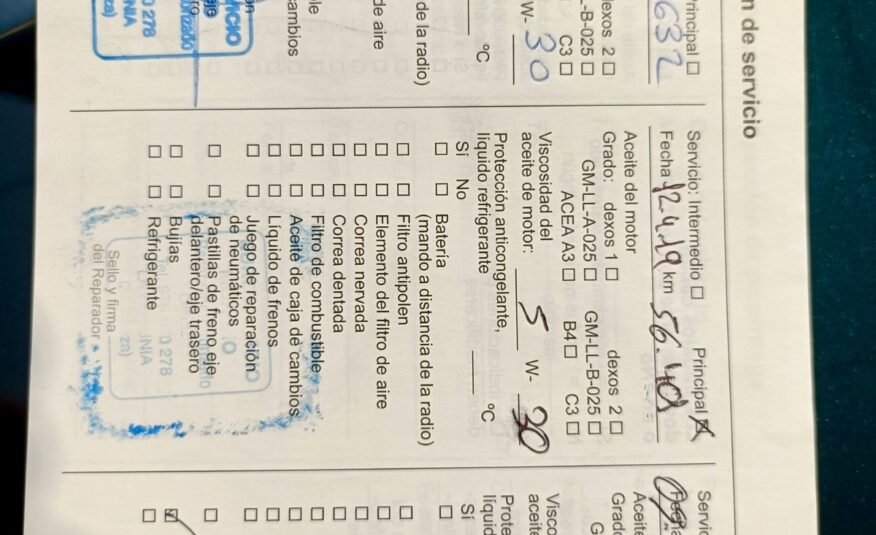 n de servicio
rincipal ☐
632
dexos 2 ☐
L-B-025 ☐
C3 ☐
W- 30
ºC
de la radio)
de aire
ble
cambios
Servicio: Intermedio ☐ Principal ☒
Fecha 12.4.19 km 56.401
Aceite del motor
Grado: dexos 1 ☐ dexos 2 ☐
GM-LL-A-025 ☐ GM-LL-B-025 ☐
ACEA A3 ☐ B4 ☐ C3 ☐
Viscosidad del
aceite de motor: 5 W- 30
Protección anticongelante,
líquido refrigerante ºC
Sí No
☐ ☐ Batería
(mando a distancia de la radio)
☐ ☐ Filtro antipolen
☐ ☐ Elemento del filtro de aire
☐ ☐ Correa nervada
☐ ☐ Correa dentada
☐ ☐ Filtro de combustible
☐ ☐ Aceite de caja de cambios
☐ ☐ Líquido de frenos
☐ ☐ Juego de reparación
de neumáticos
☐ ☐ Pastillas de freno eje
delantero/eje trasero
☐ ☐ Bujías
☐ ☐ Refrigerante
Sello y firma
del Reparador
Servic
Fecha
Aceite
Grado
G
Visco
aceite
Prote
líquid
Sí